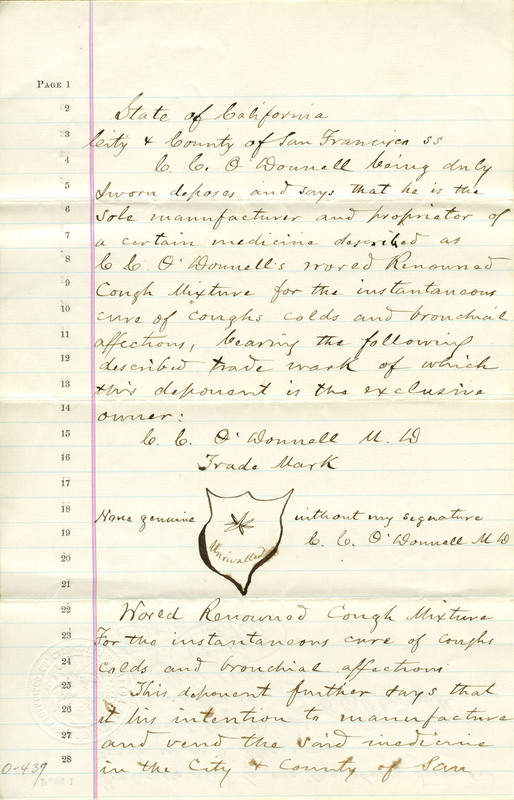 PAGE 1
2
State of California
3
City & County of San Francisco ss
4
C. C. O'Donnell being duly
5
sworn deposes and says that he is the
6
sole manufacturer and proprietor of
7
a certain medicine described as
8
C C. O'Donnell's World Renowned
9
Cough Mixture for the instantaneous
10
cure of coughs colds and bronchial
11
affections, bearing the following
12
described trade mark of which
13
this deponent is the exclusive
14
owner:
15
C. C. O'Donnell M. D
16
Trade Mark
17
18
None genuine without my signature
19
Unrivalled C. C. O'Donnell M D
20
21
22
World Renowned Cough Mixture
23
For the instantaneous cure of coughs
24
colds and bronchial affections
25
This deponent further says that
26
it his intention to manufacture
27
and vend the said medicine
28
in the City & County of San
0-437